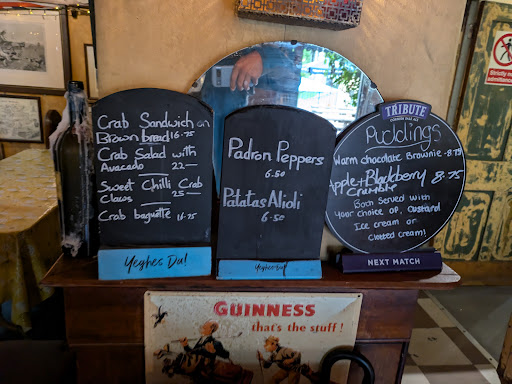 Crab Sandwich on
Brown bread 16.75
Crab Salad with
Avacado 22—
Sweet Chilli Crab
Claws 25—
Crab baguette 16.75
Yeghes Da!
Padron Peppers
6.50
Patatas Alioli
6.50
Yeghes Da!
TRIBUTE
Puddings
Warm chocolate Brownie - 8.75
Apple + Blackberry 8.75
Crumble
Both Served with
Your choice of, Custard
Ice cream or
Clotted cream!
NEXT MATCH
GUINNESS
that's the stuff!
Strictly